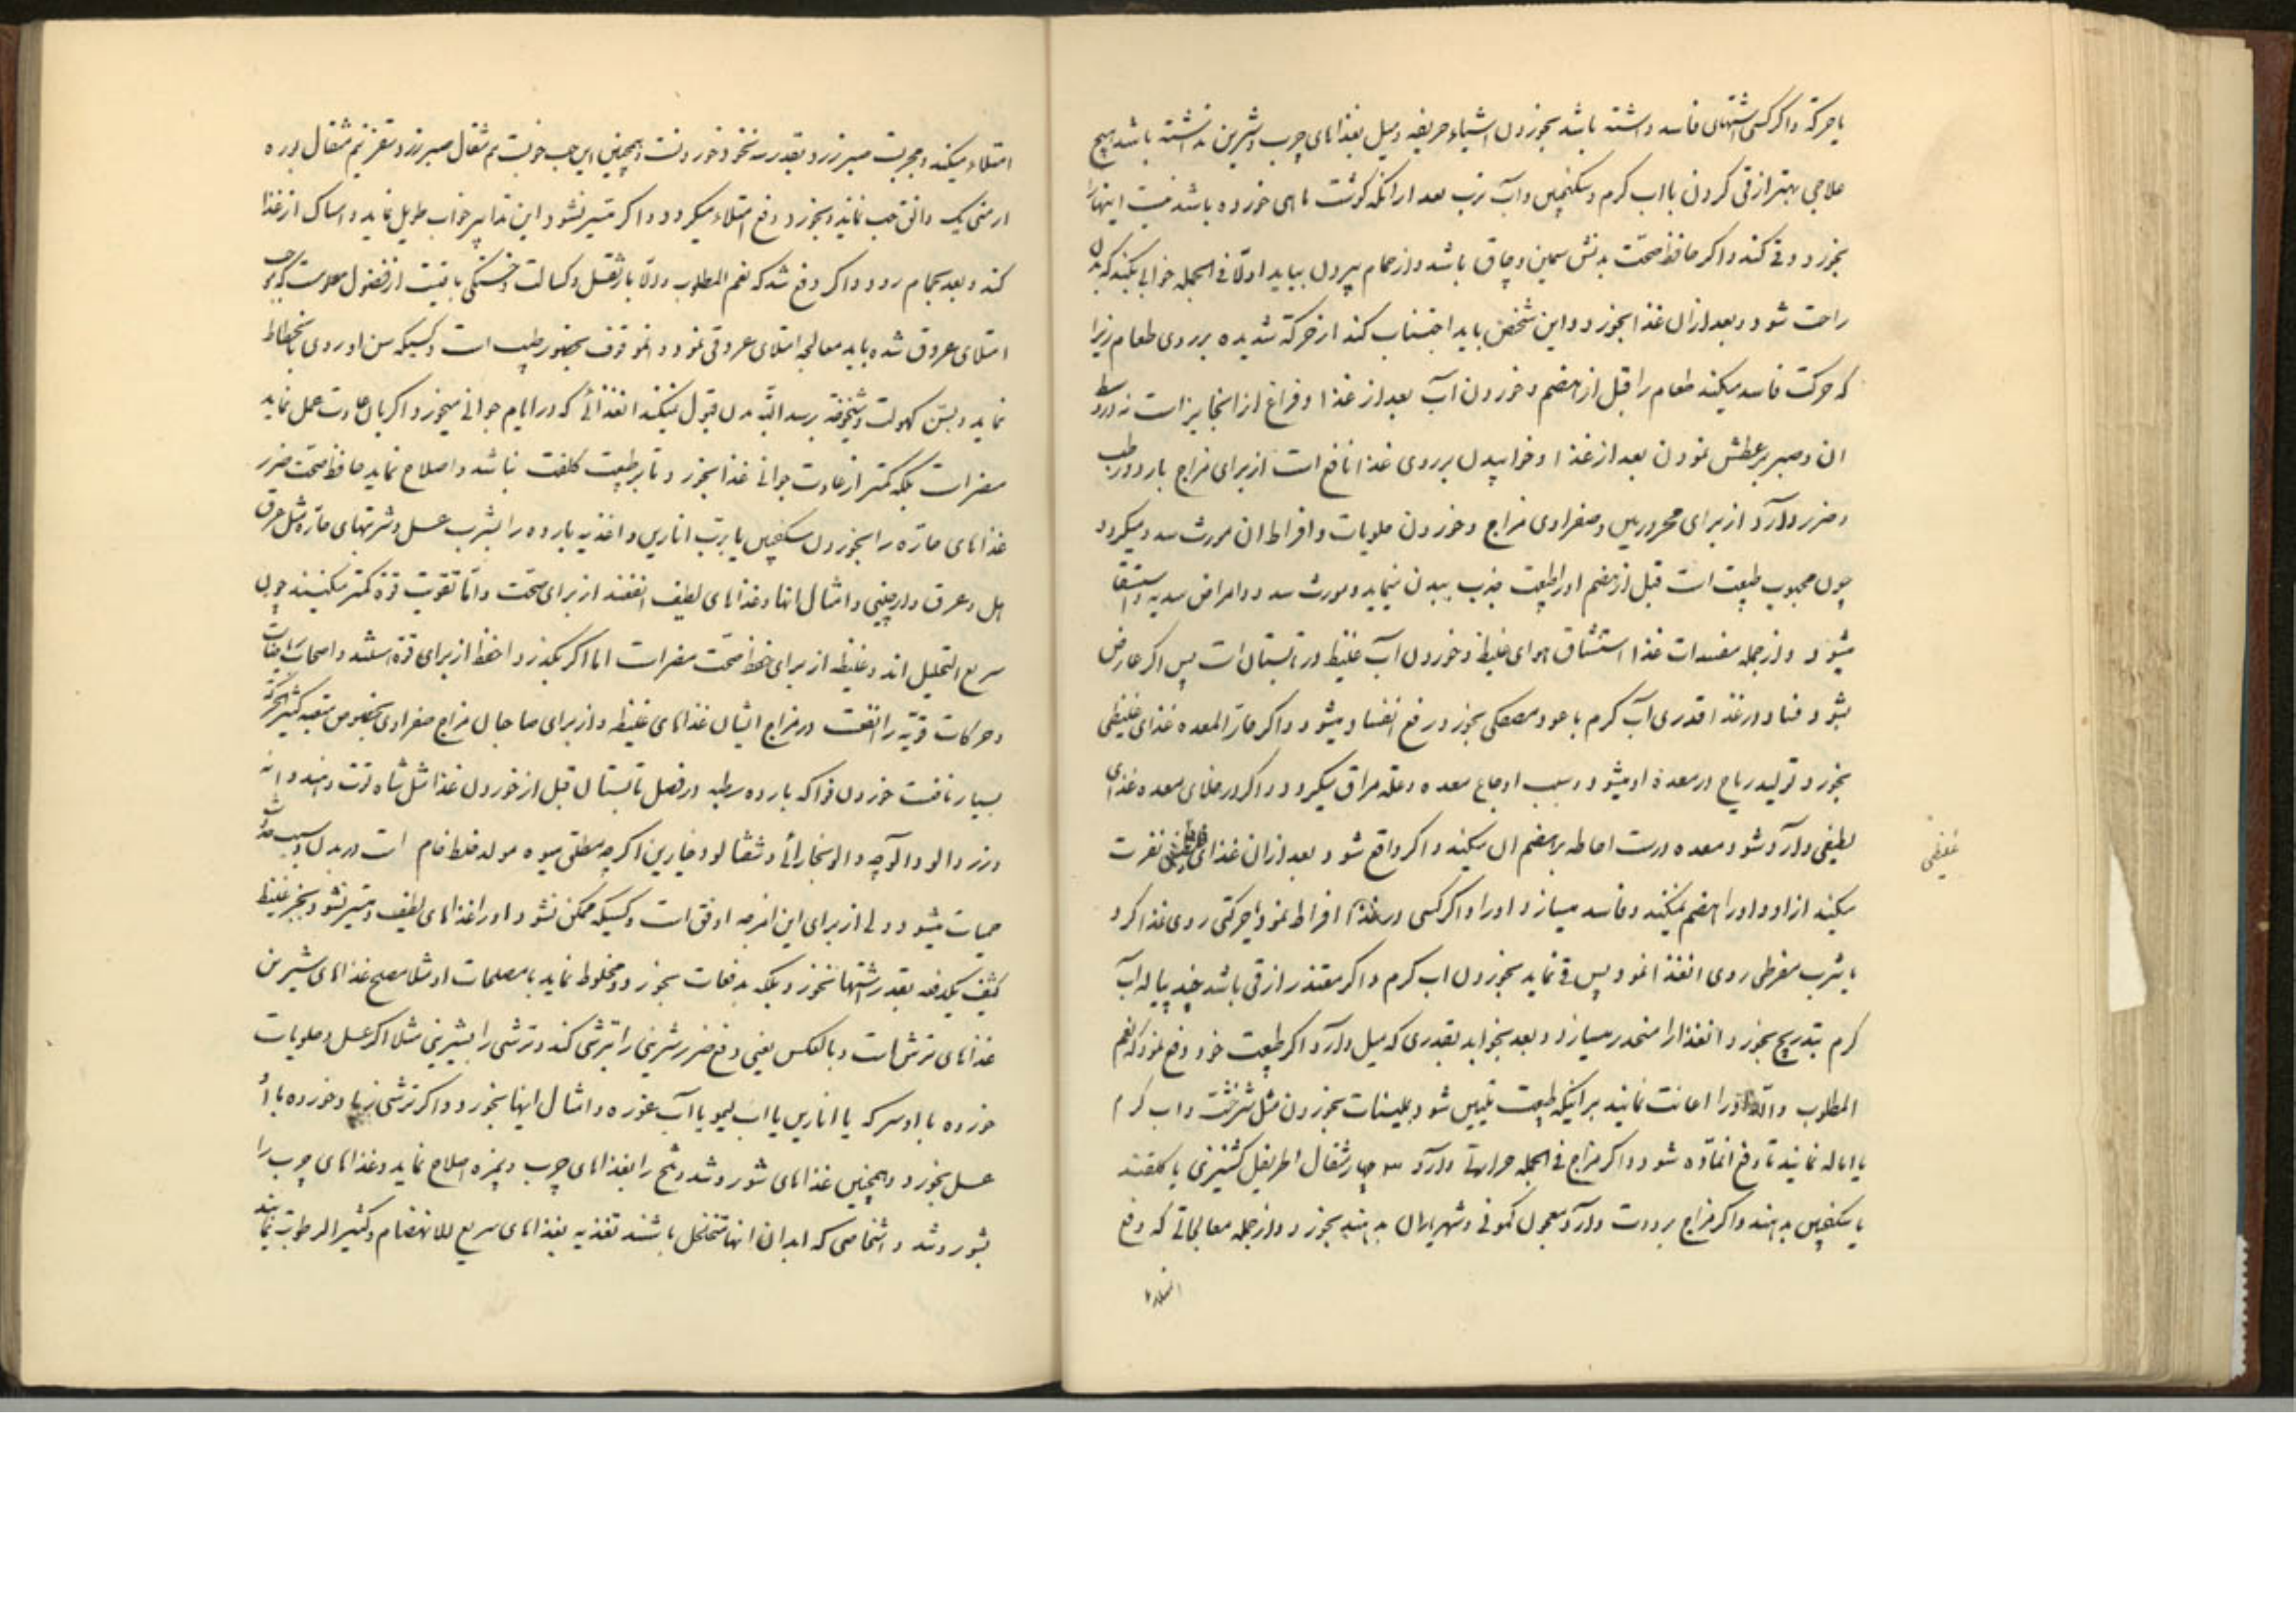 یا حرکة و اگر کسی اشتهای فاسد داشته باشد بخوردن اشیاء حریفه و میل بغذاهای چرب و شیرین نداشته باشد هیچ
علاجی بهتر از قی کردن با اب کرم و سکنجبین و آب ترب بعد از انکه کوشت ماهی خورده باشد نیست اینها را
بخورد و قی کند و اگر حافظ صحّت بدنش سمین و چاق باشد و از حمام بیرون بیاید اولاً فی الجمله خوابی بکند که بدن
راحت شود و بعد از ان غذا بخورد و این شخص باید اجتناب کند از حرکة شدیده بر روی طعام زیرا
که حرکت فاسد میکند طعام را قبل از هضم و خوردن آب بعد از غذا و فراغ از انجایز است نه در وسط
ان و صبر بر عطش نمودن بعد از غذا و خوابیدن بر روی غذا نافع است از برای مزاج بارد و رطب
و ضرر دارد از برای محرورین و صفراوی مزاج و خوردن حلویات و افراط ان مورث سده میکردد
چون محبوب طبیعت است قبل از هضم او را طبیعت جذب ببدن مینماید و مورث سده و امراض سدیه و استسقا
میشود و از جمله مفسدات غذا استنشاق هوای غلیظ و خوردن آب غلیظ در تابستان است پس اگر عارض
بشود فساد در غذا قدری آب کرم با عود و مصطکی بخورد رفع انفساد میشود و اگر حارّ المعده غذای غلیظی
بخورد تولید ریاح در معدهٔ او میشود و سبب اوجاع معده و علة مراق میکردد و اگر در خلای معده غذای
لطیفی وارد شود معده درست احاطه بر هضم ان میکند و اگر واقع شود بعد از ان غذای نفرت
غلیظی
میکند از او و او را هضم نمیکند و فاسد میسازد او را و اگر کسی در غذا افراط نمود یا حرکتی روی غذا کرد
یا شرب مفرطی روی انغذا نمود پس قی نماید بخوردن اب کرم و اگر متعذر از قی باشد چند پیاله آب
کرم بتدریج بخورد انغذا را منحدر میسازد و بعد بخوابد بقدری که میل دارد اگر طبیعت خود دفع نمود که نعم
المطلوب و الا او را اعانت نمایند بر اینکه طبیعت تلیین شود بملینات بخوردن مثل شیرخشت و اب کرم
یا اماله نمایند تا دفع انماده شود و اگر مزاج فی الجمله حرارتی دارد سه چهار مثقال اطریفل کشنیزی با کلقند
یا سکنجبین بدهند و اگر مزاج برودت دارد معجون کمونی و شهریاران بدهند بخورد و از جمله معالجاتی که رفع
امتلاء
امتلاء میکند و مجربست صبر زرد بقدر سه نخود خوردنست و همچنین این حب خوبست نیم مثقال صبر زرد و سقز نیم مثقال بوره
ارمنی یک دانق حب نمایند و بخورد رفع امتلاء میکردد و اگر متیسر نشود این تدابیر خواب طویل نماید و امساک از غذا
کند و بعد بحمام رود و اگر دفع شد که نعم المطلوب و الا باز ثقل و کسالت و خستکی باقیست از فضول معلومست که موجب
امتلای عروق شده باید معالجه امتلای عروقی نمود و انموقوف بحضور طبیب است و کسیکه سن او روی بانحطاط
نماید و بسن کهولت و شیخوخة برسد البته بدن قبول نمیکند انغذائی که در ایام جوانی میخورد اگر بان عادت عمل نماید
مضر است بلکه کمتر از عادت جوانی غذا بخورد و تا بر طبیعت کلفت نباشد و اصلاح نماید حافظ صحّت ضرر
غذاهای حارّه را بخوردن سکنجبین یا برب انارین و اغذیه بارده را بشرب عسل و شربتهای حارّه مثل عرق
هل و عرق دارچینی و امثال انها و غذاهای لطیف انفعند از برای صحّت و امّا تقویت قوة کمتر میکنند چون
سریع التحلیل اند و غلیظه از برای حفظ صحّت مضر است اما اگر بکذرد احفظ از برای قوة هستند و اصحاب ریاضات
و حرکات قویّه را انفعست در مزاج ایشان غذاهای غلیظه و از برای صاحبان مزاج صفراوی بخصوص متعبه کثیر الحرکة
بسیار نافعست خوردن فواکه بارده رطبه در فصل تابستان قبل از خوردن غذا مثل شاه توت و هندوانه
و زردالو و الوچه و الو بخارائی و شفتالو و خیارین اگر چه مطلق میوه مولد خلط خام است در بدن و سبب حدوث
حمیات میشود ولی از برای این امزجه اوفق است و کسیکه ممکن نشود او را غذاهای لطیف و متیسر نشود بجز غلیظ
کثیف یکدفعه بقدر اشتها نخورد بلکه بدفعات بخورد و مخلوط نماید با مصلحات او مثلا مصلح غذاهای شیرین
غذاهای ترش است و بالعکس یعنی دفع ضرر شیرینی را بترشی کند و ترشی را بشیرینی مثلا اگر عسل و حلویات
خورده با او سرکه یا انارین یا اب لیمو یا آب غوره و امثال اینها بخورد و اگر ترشی زیاد خورده با او
عسل بخورد و همچنین غذاهای شور و تند و تلخ را بغذاهای چرب و بیمزه اصلاح نماید و غذاهای چرب را
بشور و تند و اشخاصی که ابدان انها متخلخل باشند تغذیه بغذاهای سریع للانهضام و کثیر الرطوبة نمایند